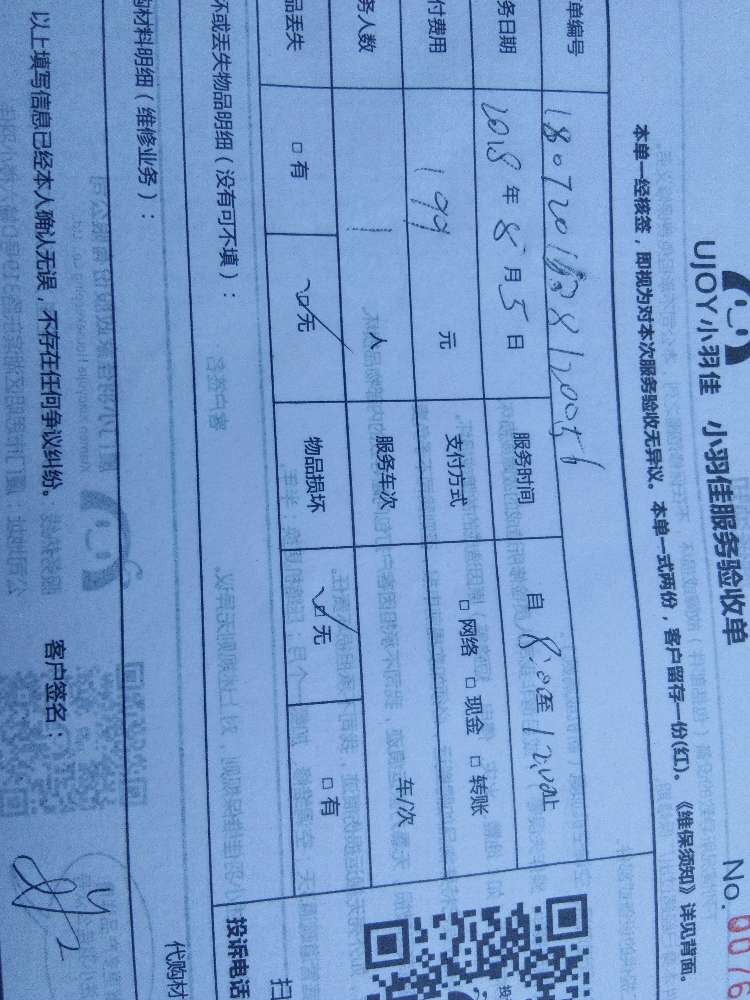 UJOY小羽佳 小羽佳服务验收单 No. 0076
本单一经核签，即视为对本次服务验收无异议。本单一式两份，客户留存一份(红)。《维保须知》详见背面。
单编号
务日期 2018年8月5日 服务时间 自8:0至12:0止
付费用 199 元 支付方式 □网络 □现金 □转账
务人数 1 人 服务车次 车/次
品丢失 □有 □无 物品损坏 □无 □有
坏或丢失物品明细（没有可不填）：
投诉电话
扫
购材料明细（维修业务）：
代购材
以上填写信息已经本人确认无误，不存在任何争议纠纷。 客户签名：